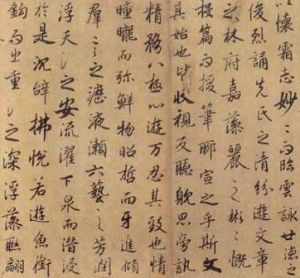 以懷霜志妙〻而臨雲詠世德
俊烈誦先民之清紛遊文章
之林府嘉藻麗之彬〻慨
投篇而援筆聊宣之乎斯文
其始也皆收視反聽耽思傍訊
精務八極心遊万刃其致也情
曈曨而弥鮮物昭晢而互進
群言之瀝液漱六藝之芳潤
浮天淵之安流濯下泉而潛浸
於是沉辞怫悅若遊魚銜
鉤而出重淵之深浮藻聯翩